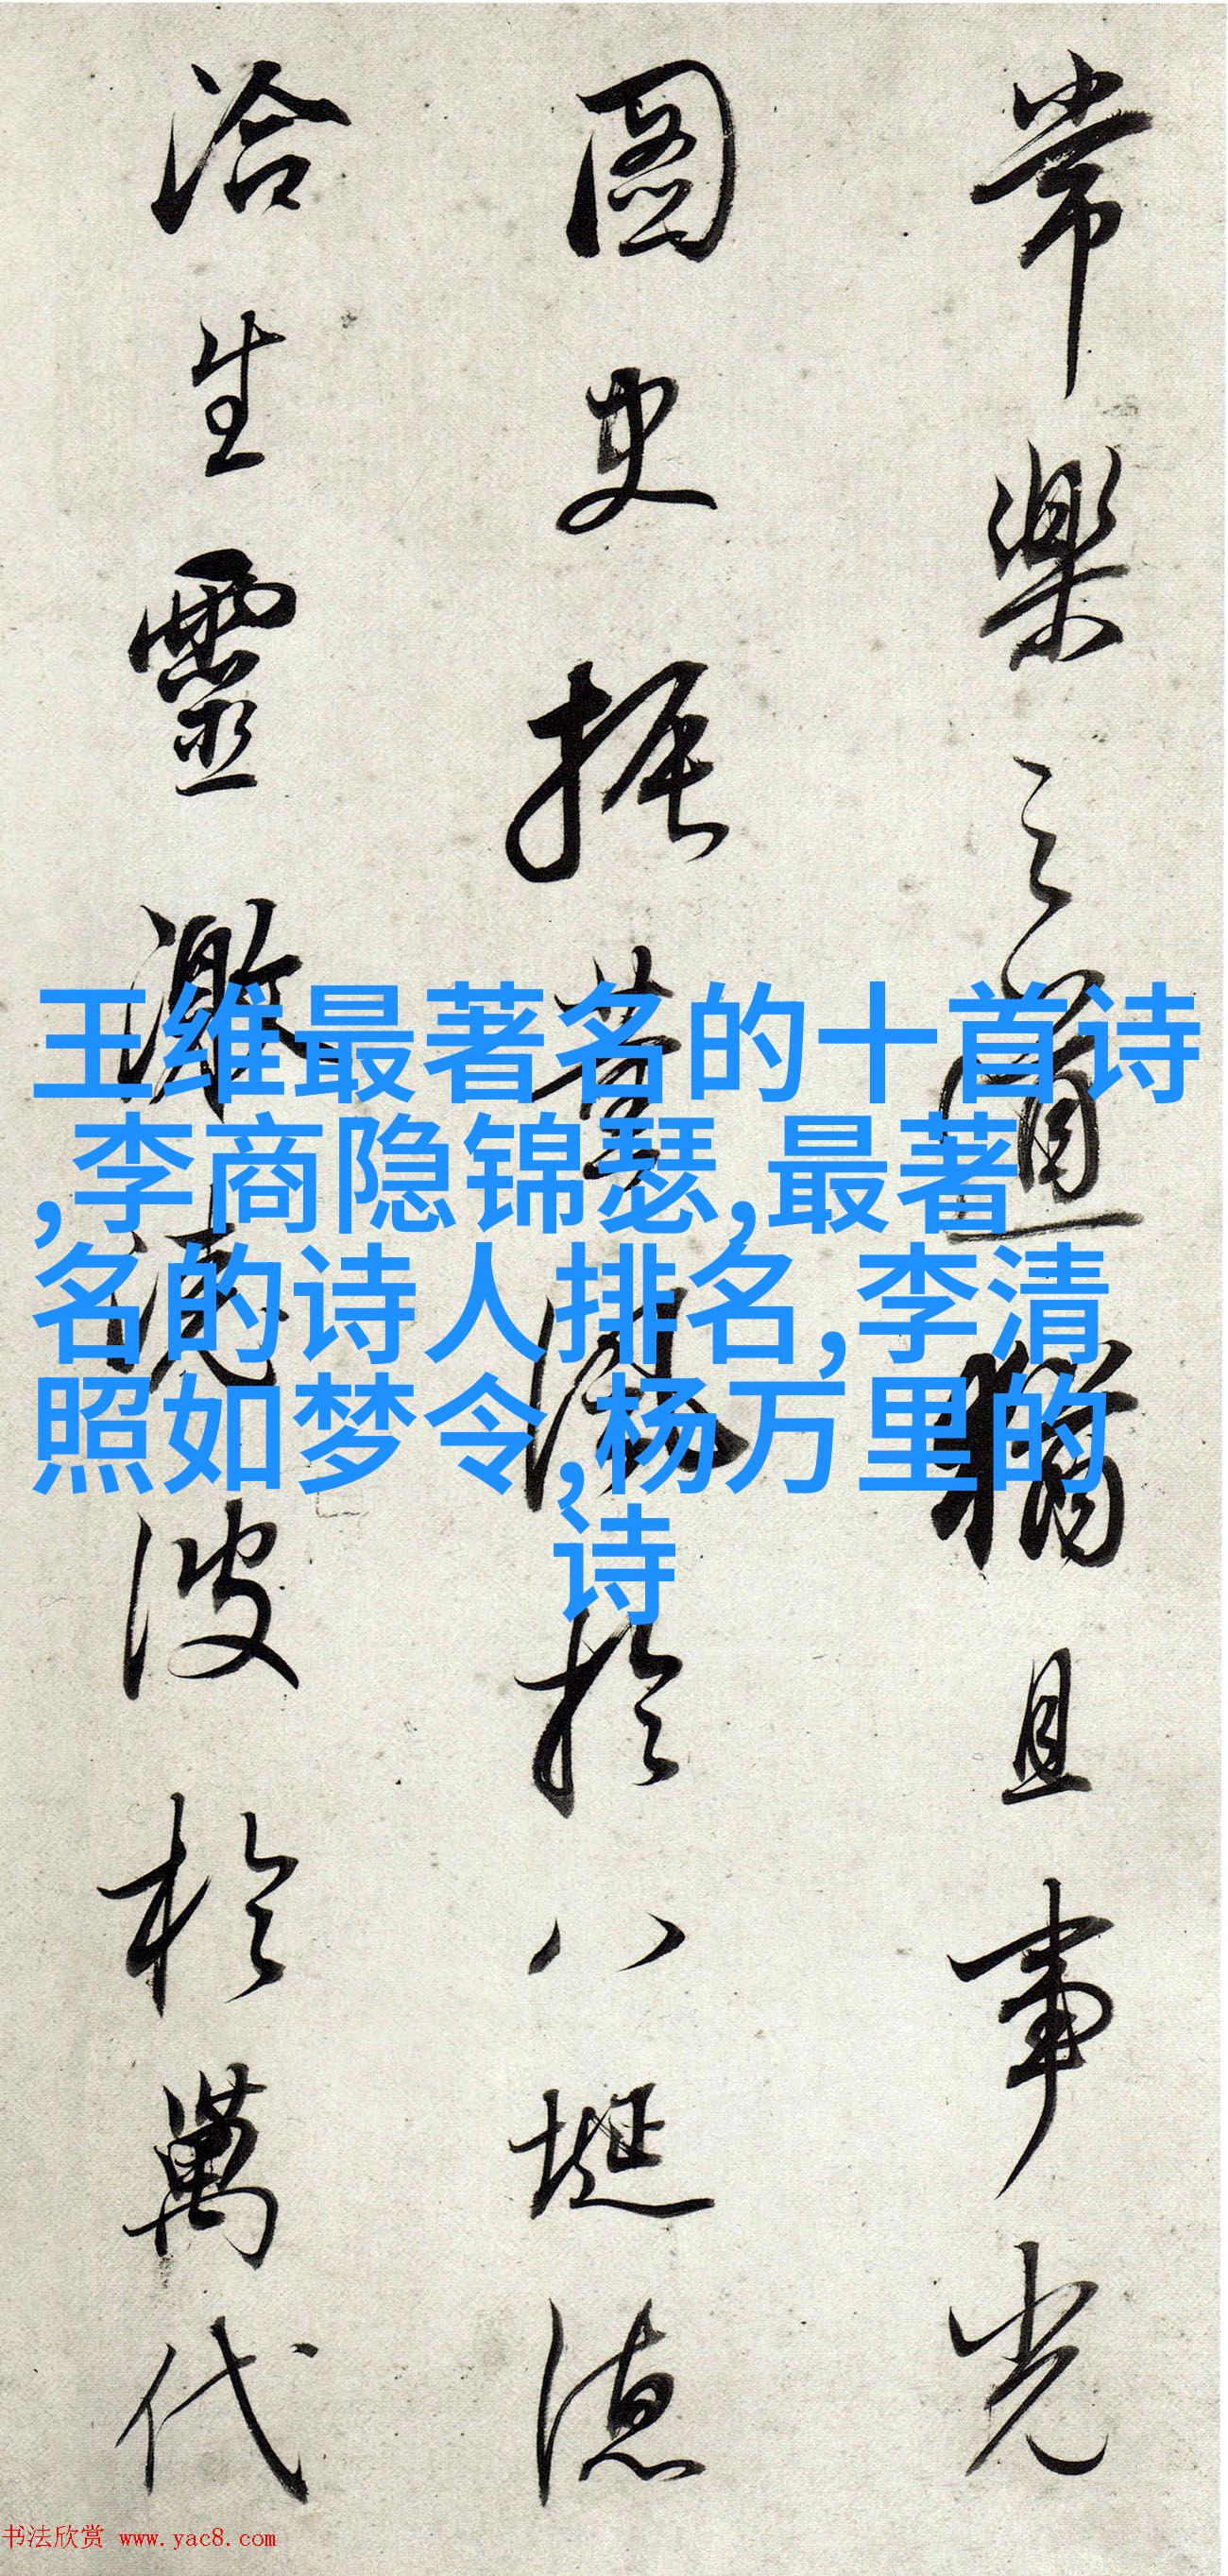 常樂之道猶且事光
圖史振薰風於八埏德
洽生靈激流波於萬代
王维最著名的十首诗
,李商隐锦瑟,最著
名的诗人排名,李清
照如梦令,杨万里的
诗
书法欣赏 www.yac8.com